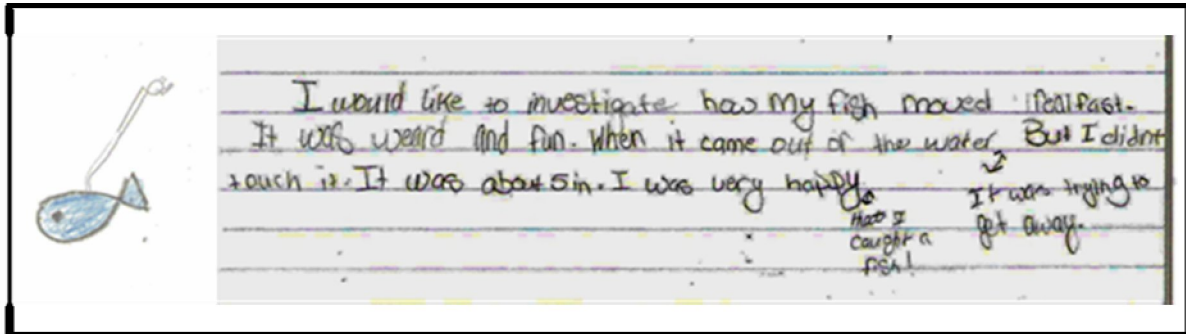 I would like to investigate how my fish moved real fast.
It was weard and fun. When it came out of the water But I didnt
touch it. It was about 5 in. I was very happy
It was trying to
get away.
that I
caught a
fish!